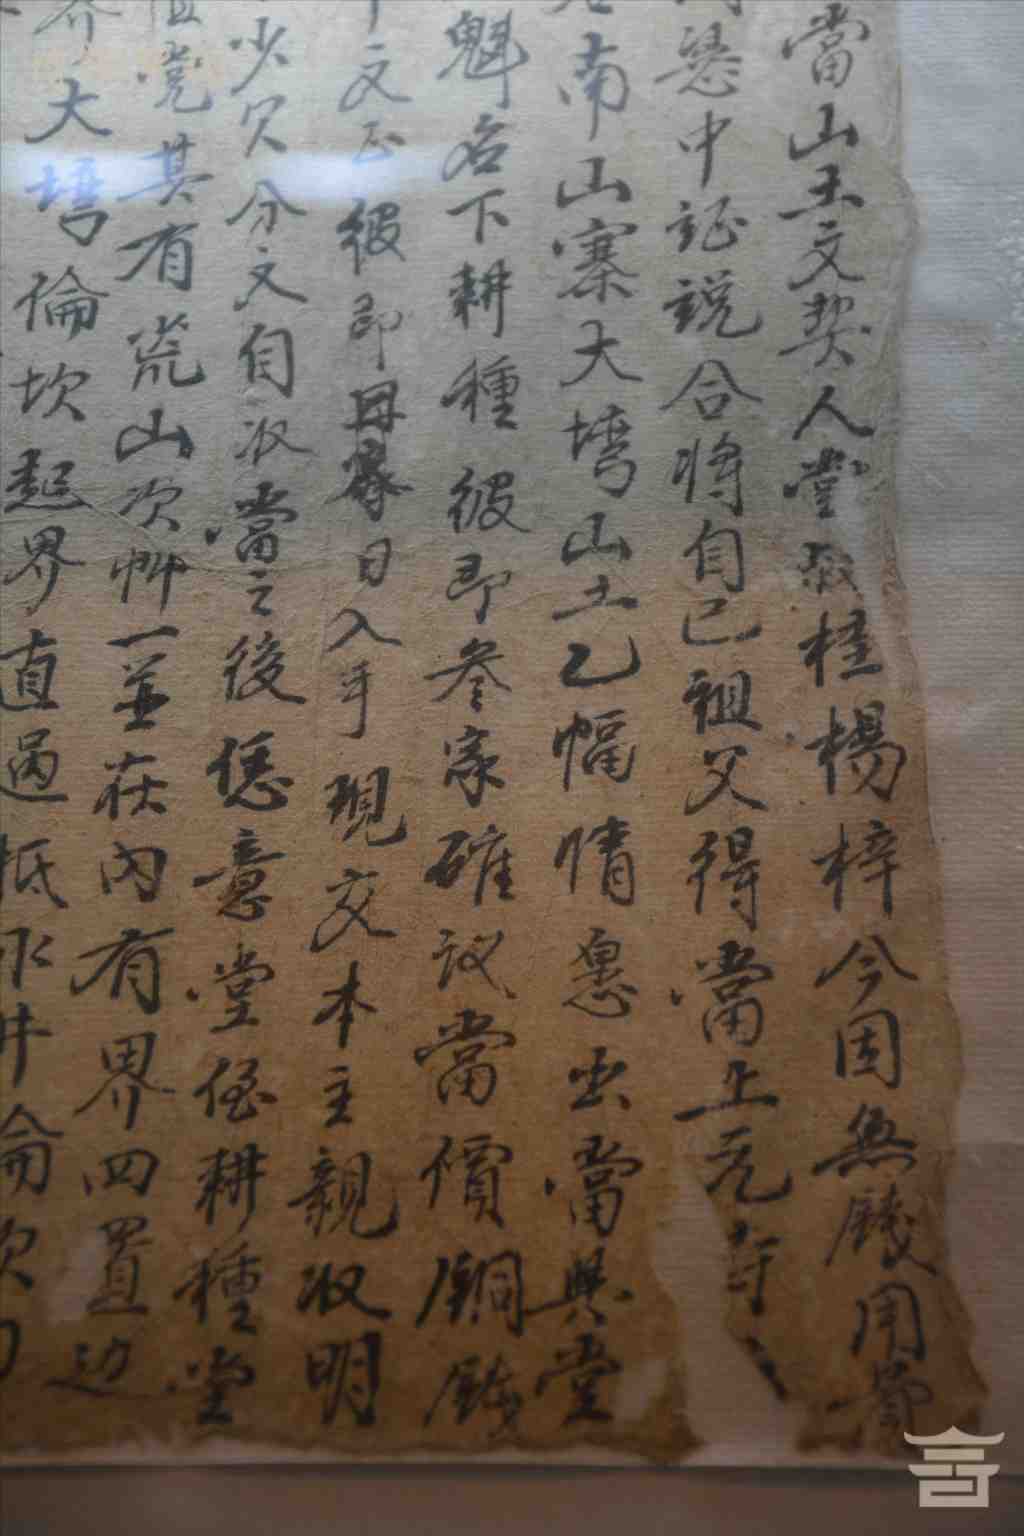 當山土文契人堂叔桂楊梓今因無錢用
懇中証説合將自己祖父得當上
南山寨大塆山土乙幅情愿出當與堂
魁名下耕種彼即叁家確议當價銅錢
文正彼即日入手現交本主親收明
少欠分文自收當之後恁意堂侄耕種堂
其有荒山次艸一並在內有界四置边
大塆倫坎起界直過抵水井倫坎